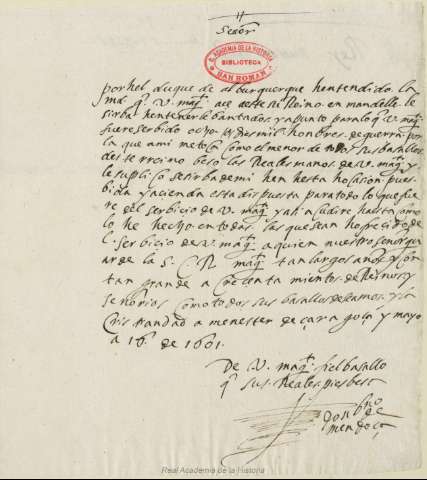 Señor
R. ACADEMIA DE LA HISTORIA
BIBLIOTECA
SAN ROMAN
por hel duque de alburquerque hentendido la
md q V. magt ace a este su Reino en mandelle le
sirba hentenerle bantados y apunto para lo q V. magt
fuere serbido ocho o diez mil honbres de guerra por
la que a mi me toca como el menor de todos sus basallos
deste rreino beso las Reales manos de V. magt y
le suplico se sirba de mi hen hesta hocasion pues bi
bida y acienda esta dispuesta para todo lo que fue
re del serbicio de V. magt y asi acudire hasta como
lo he hecho en todas las que sean hofrecido de
el serbicio de V. magt a quien nuestro señor gu
arde la S. C. R. magt tan largos años y con
tan grande acrecentamientos de Reinos y
señorios como todos sus basallos deseamos y la
cristiandad a menester de çaragoça y mayo
a 16 de 1601.
De V. magt fiel basallo
q sus Reales pies besa
don
de
mendoça
Real Academia de la Historia